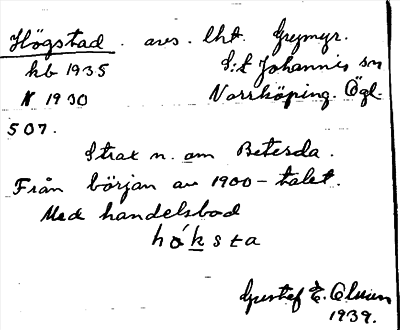 Högstad. avs. lht. Grymyr.
kb 1935 S:t Johannis sn
K 1930 Norrköping. Ögl.
507.
Strax n. om Betesda.
Från början av 1900-talet.
Med handelsbod
hóksta
Gustef E. Olsson
1939.